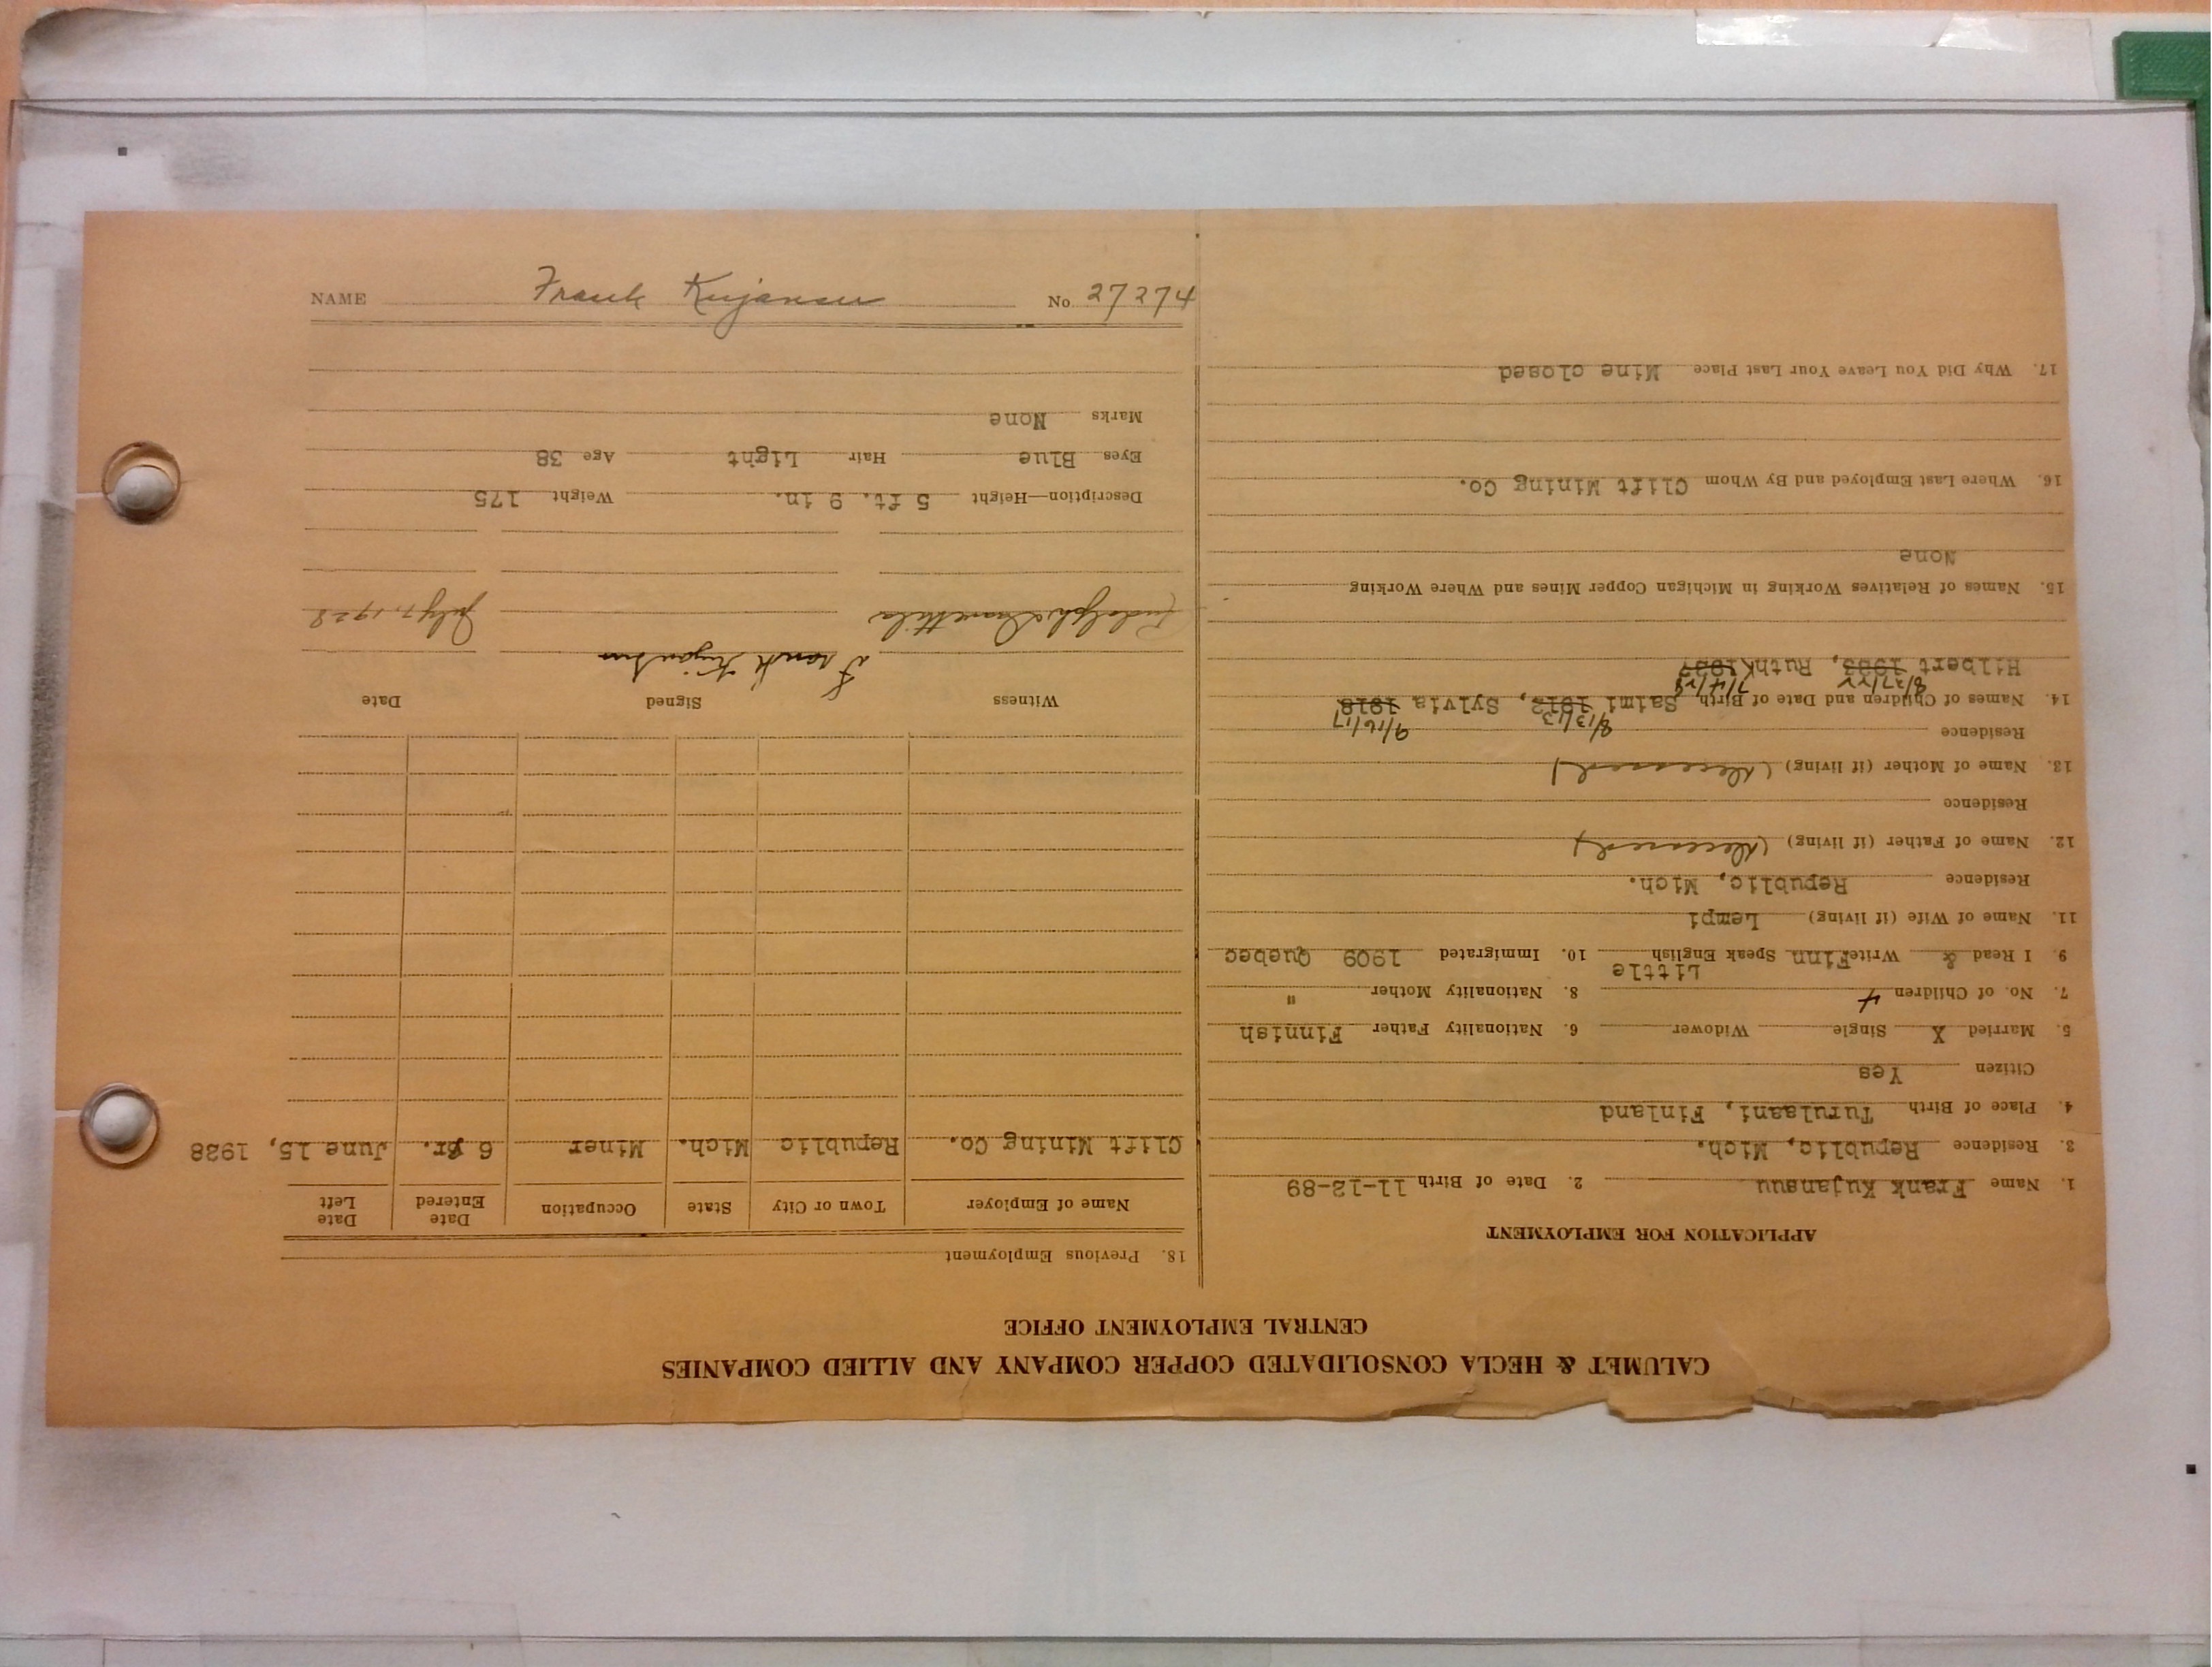 CALUMET & HECLA CONSOLIDATED COPPER COMPANY AND ALLIED COMPANIES
CENTRAL EMPLOYMENT OFFICE
APPLICATION FOR EMPLOYMENT
1. Name Frank Kujansuu 2. Date of Birth 11-12-89
3. Residence Republic, Mich.
4. Place of Birth Turulaani, Finland
Citizen Yes
5. Married X Single Widower 6. Nationality Father Finnish
7. No. of Children 4 8. Nationality Mother "
Little
9. I Read & Write Finn Speak English 10. Immigrated 1909 Quebec
11. Name of Wife (if living) Lempi
Residence Republic, Mich.
12. Name of Father (if living) (Deceased)
Residence
13. Name of Mother (if living) (Deceased)
Residence
8/13/13 9/16/17
14. Names of Children and Date of Birth Saimi 1912, Sylvia 1918
8/27/22 7/4/28
Hilbert 1923, Ruth 1927
15. Names of Relatives Working in Michigan Copper Mines and Where Working
None
16. Where Last Employed and By Whom Clift Mining Co.
17. Why Did You Leave Your Last Place Mine closed
18. Previous Employment
Name of Employer Town or City State Occupation Date Entered Date Left
Clift Mining Co. Republic Mich. Miner 6 yr. June 15, 1928
Witness Signed Date
Frank Kujansuu
Rudolph July 7, 1928
Description—Height 5 ft. 9 in. Weight 175
Eyes Blue Hair Light Age 38
Marks None
NAME Frank Kujansuu No 27274